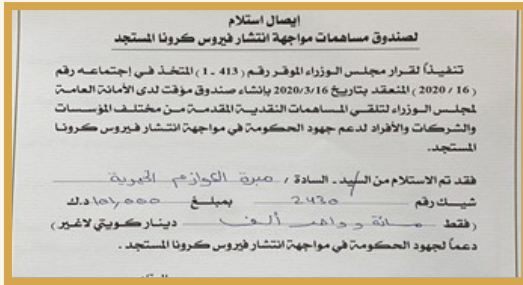 إيصال استلام
لصندوق مساهمات مواجهة انتشار فيروس كرونا المستجد
تنفيذاً لقرار مجلس الوزراء الموقر رقم (413 - 1) المتخذ في إجتماعه رقم
(16 / 2020) المنعقد بتاريخ 2020/3/16 بإنشاء صندوق مؤقت لدى الأمانة العامة
لمجلس الوزراء لتلقي المساهمات النقدية المقدمة من مختلف المؤسسات
والشركات والأفراد لدعم جهود الحكومة في مواجهة انتشار فيروس كرونا
المستجد.
فقد تم الاستلام من السيد . السادة / مبرة العوازم الخيرية
شيك رقم 2430 بمبلغ 101,000 د.ك
(فقط مائة وواحد ألف دينار كويتي لاغير)
دعماً لجهود الحكومة في مواجهة انتشار فيروس كرونا المستجد .